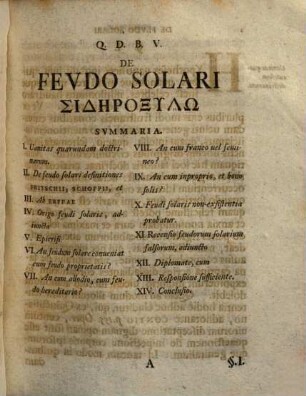 Q. D. B. V.
DE
FEVDO SOLARI
ΣΙΔΗΡΟΞΥΛΩ
SVMMARIA.
I. Vanitas quarundam doctrinarum.
II. De feudo solari definitiones
SCHOPFII, et
III. AB
IV. Origo feudi solaris, adiuncta
V. Epicrisi
VI. An feudum solare conueniat
cum feudo proprietatis?
VII. An cum allodio, cum feudo
hereditario?
VIII. An cum franco uel
IX. An cum inproprio, et bonis
solis?
X. Feudi solaris non-existentia
probatur.
XI. Recensio feudorum solarium
falsorum, adiuncto
XII. Diplomate, cum
XIII. Responsione sufficiente.
XIV. Conclusio.
A
§. I.